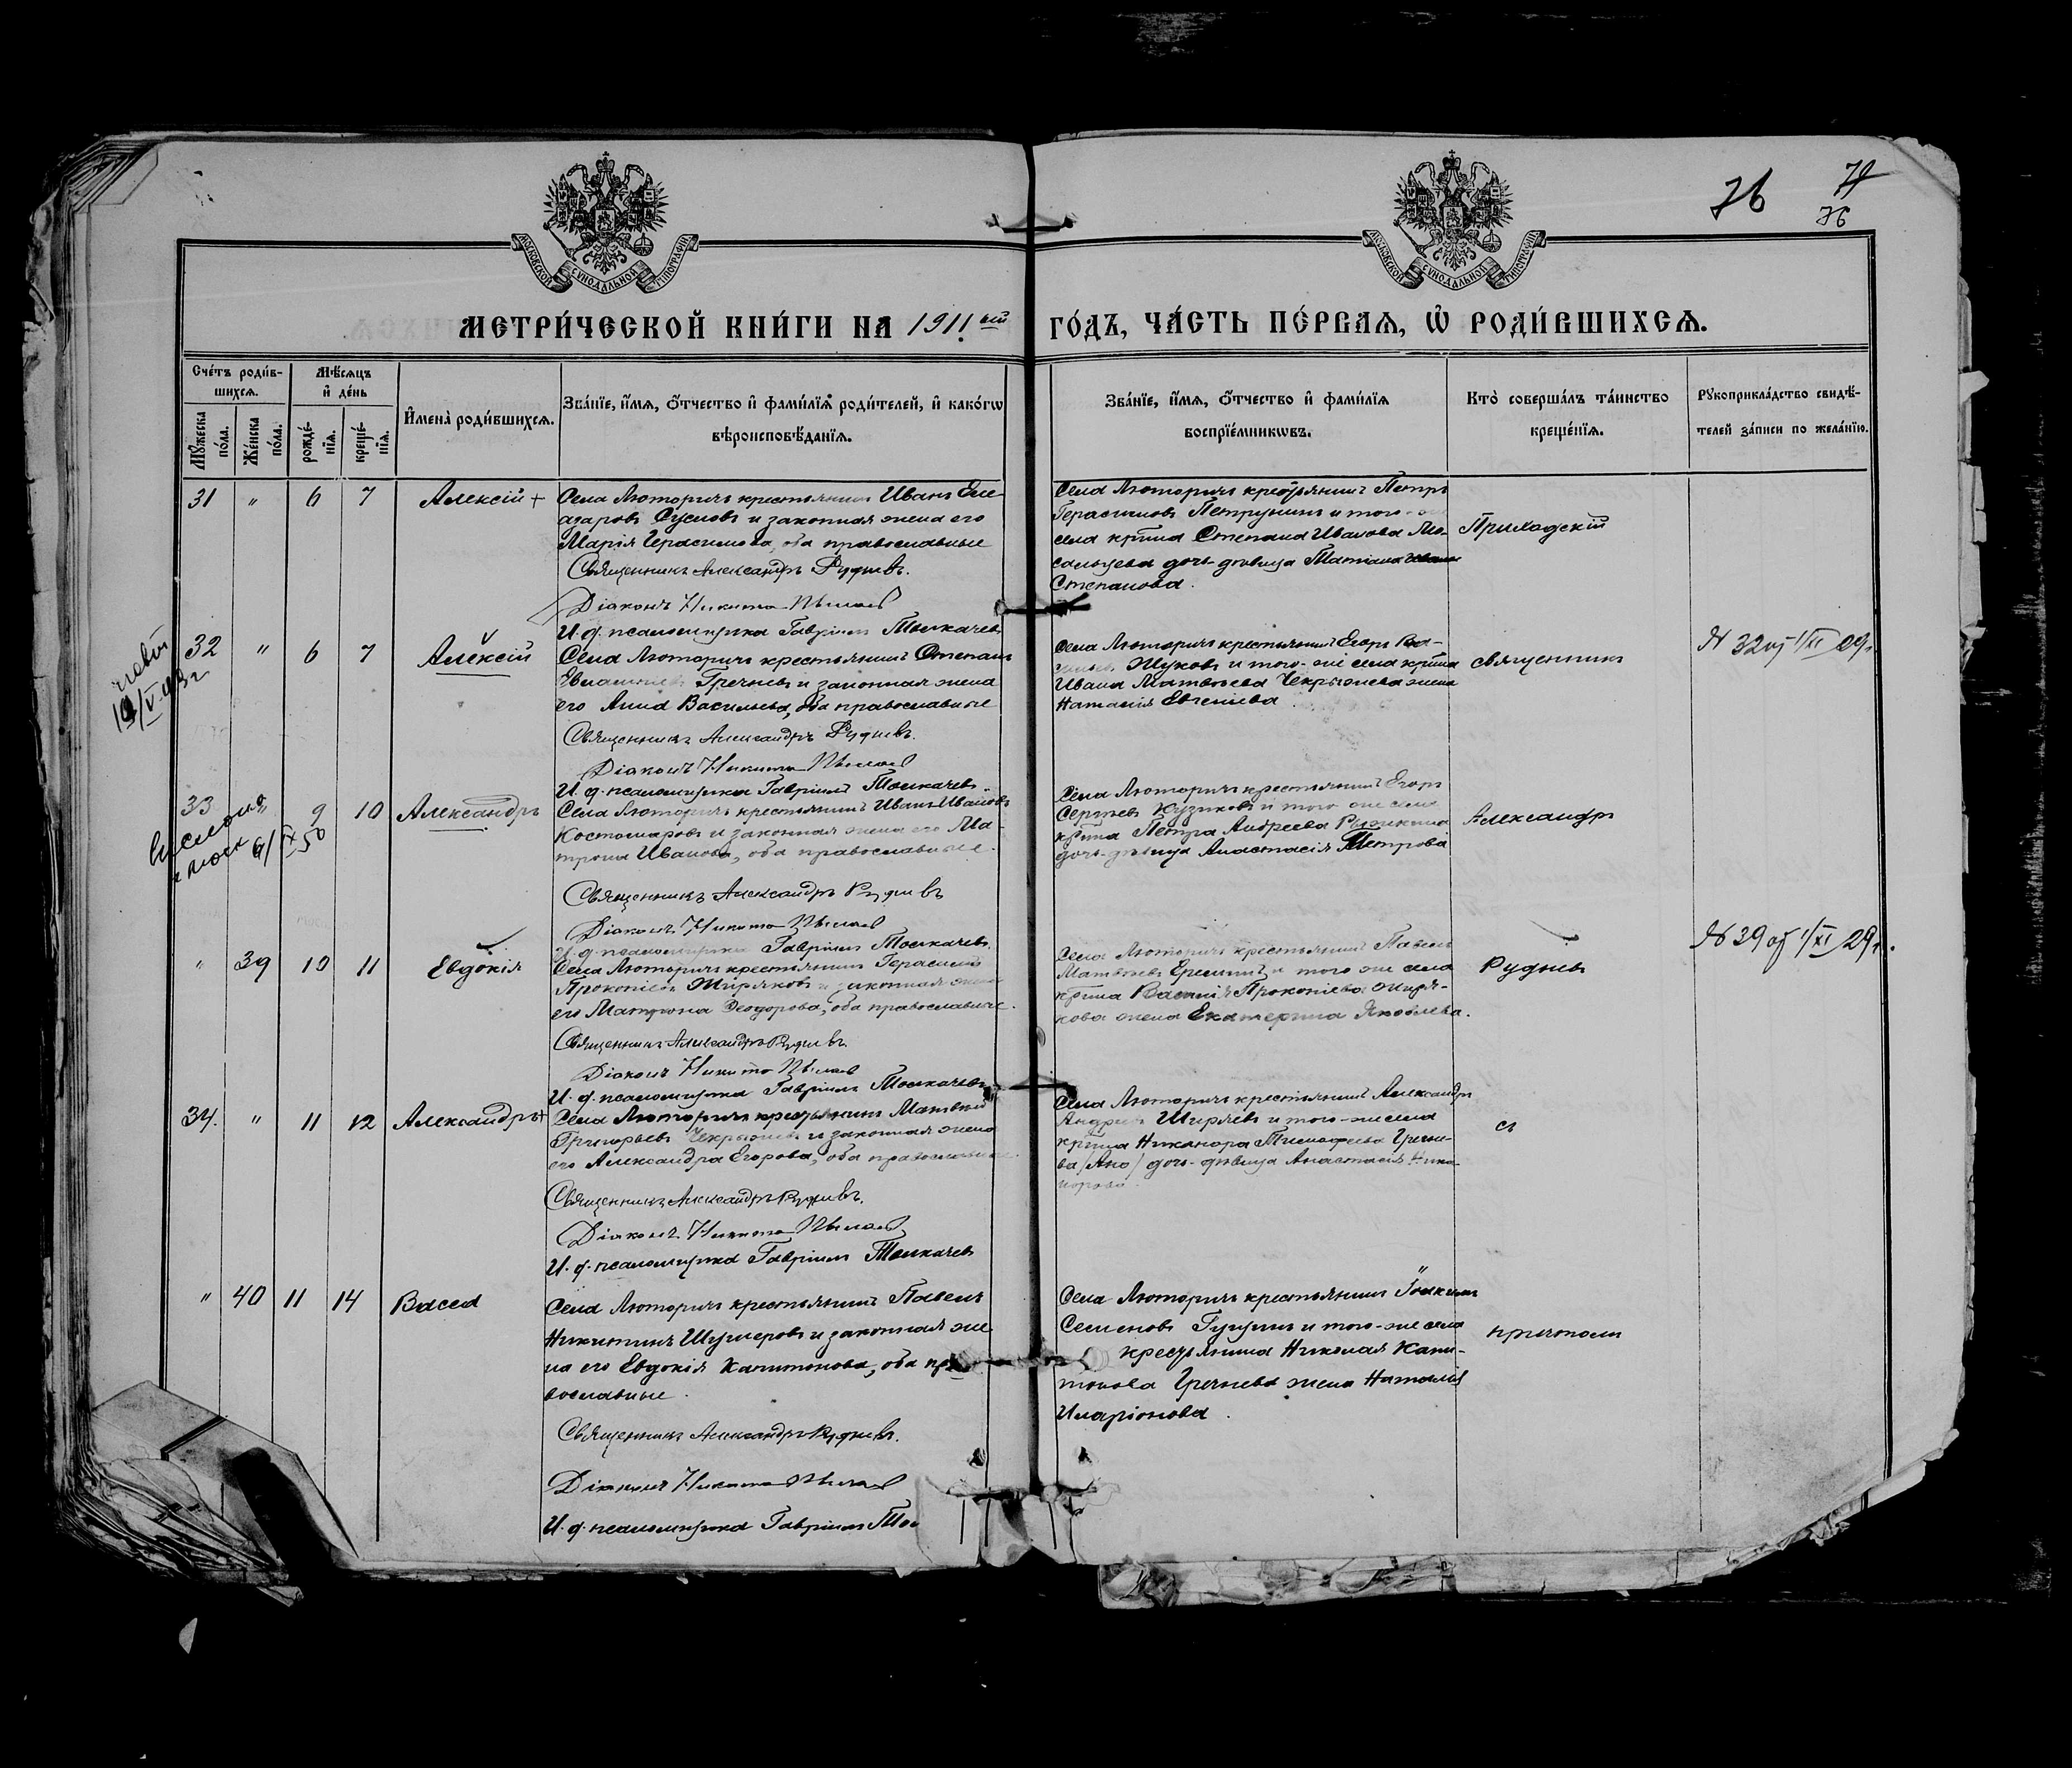 76
77
76
МОСКОВСКОЙ СѴНОДАЛЬНОЙ ТИПОГРАФІИ
МОСКОВСКОЙ СѴНОДАЛЬНОЙ ТИПОГРАФІИ
МЕТРИ́ЧЕСКОЙ КНИ́ГИ НА 1911ый ГО́ДЪ, ЧА́СТЬ ПЕ́РВАѦ, Ѡ҆ РОДИ́ВШИХСѦ.
Сче́тъ роди́в-
шихсѧ.
Мѣ́сѧцъ
и҆ де́нь
Мꙋ́жеска по́ла.
Же́нска по́ла.
рожде́-
нїѧ.
креще́-
нїѧ.
И҆мена̀ роди́вшихсѧ.
Зва́нїе, и҆́мѧ, ѻ҆́тчество и҆ фами́лїѧ роди́телей, и҆ како́гѡ
вѣроисповѣ́данїѧ.
Зва́нїе, и҆́мѧ, ѻ҆́тчество и҆ фами́лїѧ
воспрїе́мникѡвъ.
Кто̀ соверша́лъ та́инство
креще́нїѧ.
Рꙋкоприкла́дство свидѣ́-
телей за́писи по жела́нїю.
31 " 6 7 Алексій +
Села Люторичъ крестьянинъ Иванъ Еле-
азаровъ Сусловъ и законная жена его
Марія Герасимова, оба православные
Священникъ Александръ Рудневъ.
Діаконъ Никита
И. д. псаломщика Гавріилъ Толкачевъ
Села Люторичъ крестьянинъ Петръ
Герасимовъ Петрунинъ и того-же
села крт̃на Степана Иванова Мо-
сальцева дочь-дѣвица Татіана
Степанова.
Приходскій
32 " 6 7 Алексій
Села Люторичъ крестьянинъ Степанъ
Гречневъ и законная жена
его Анна Васильева, оба православные
Священникъ Александръ Рудневъ.
Діаконъ Никита
И. д. псаломщика Гавріилъ Толкачевъ.
Села Люторичъ крестьянинъ Егоръ
Жуковъ и того-же села крт̃на
Ивана Матвѣева Чекрыжева жена
Наталія Евгеніева.
священникъ
№ 32 от 1/XI 29г.
33 " 9 10 Александръ
6/IX 50
Села Люторичъ крестьянинъ Иванъ Ивановъ
Костомаровъ и законная жена его Ма-
трона Иванова, оба православные.
Священникъ Александръ Рудневъ
Діаконъ Никита
И. д. псаломщика Гавріилъ Толкачевъ.
Села Люторичъ крестьянинъ Егоръ
Сергѣевъ Кузиковъ и того же села
крт̃на Петра Андреева
дочь-дѣвица Анастасія Петрова
Александръ
" 39 10 11 Евдокія
Села Люторичъ крестьянинъ Герасимъ
Прокопіевъ Жиряковъ и законная жена
его Матрона Ѳеодорова, оба православные.
Священникъ Александръ Рудневъ.
Діаконъ Никита
И. д. псаломщика Гавріилъ Толкачевъ
Села Люторичъ крестьянинъ Павелъ
Матвѣевъ Еремин и того же села
крт̃на Василія Прокопіева Жиря-
кова жена Екатерина Яковлева.
Рудневъ
№ 39 от 1/XI 29г.
34. " 11 12 Александръ +
Села Люторичъ крестьянинъ Матвѣй
Григорьевъ Чекрыжевъ и законная жена
его Александра Егорова, оба православные.
Священникъ Александръ Рудневъ.
Діаконъ Никита
И. д. псаломщика Гавріилъ Толкачевъ
Села Люторичъ крестьянинъ Александръ
Андреевъ Ширяевъ и того-же села
крт̃на Никанора Тимофеева Гречне-
ва дочь-дѣвица Анастасія Ника-
норова.
съ
" 40 11 14 Васса
Села Люторичъ крестьянинъ Павелъ
Никитинъ Шумеровъ и законная же-
на его Евдокія Капитонова, оба пра-
вославные.
Священникъ Александръ Рудневъ.
Діаконъ Никита
И. д. псаломщика Гавріилъ
Села Люторичъ крестьянинъ Іоакимъ
Семеновъ и того-же села
крестьянина Николая Капи-
тонова Гречнева жена Наталія
Иларіонова.
причтомъ